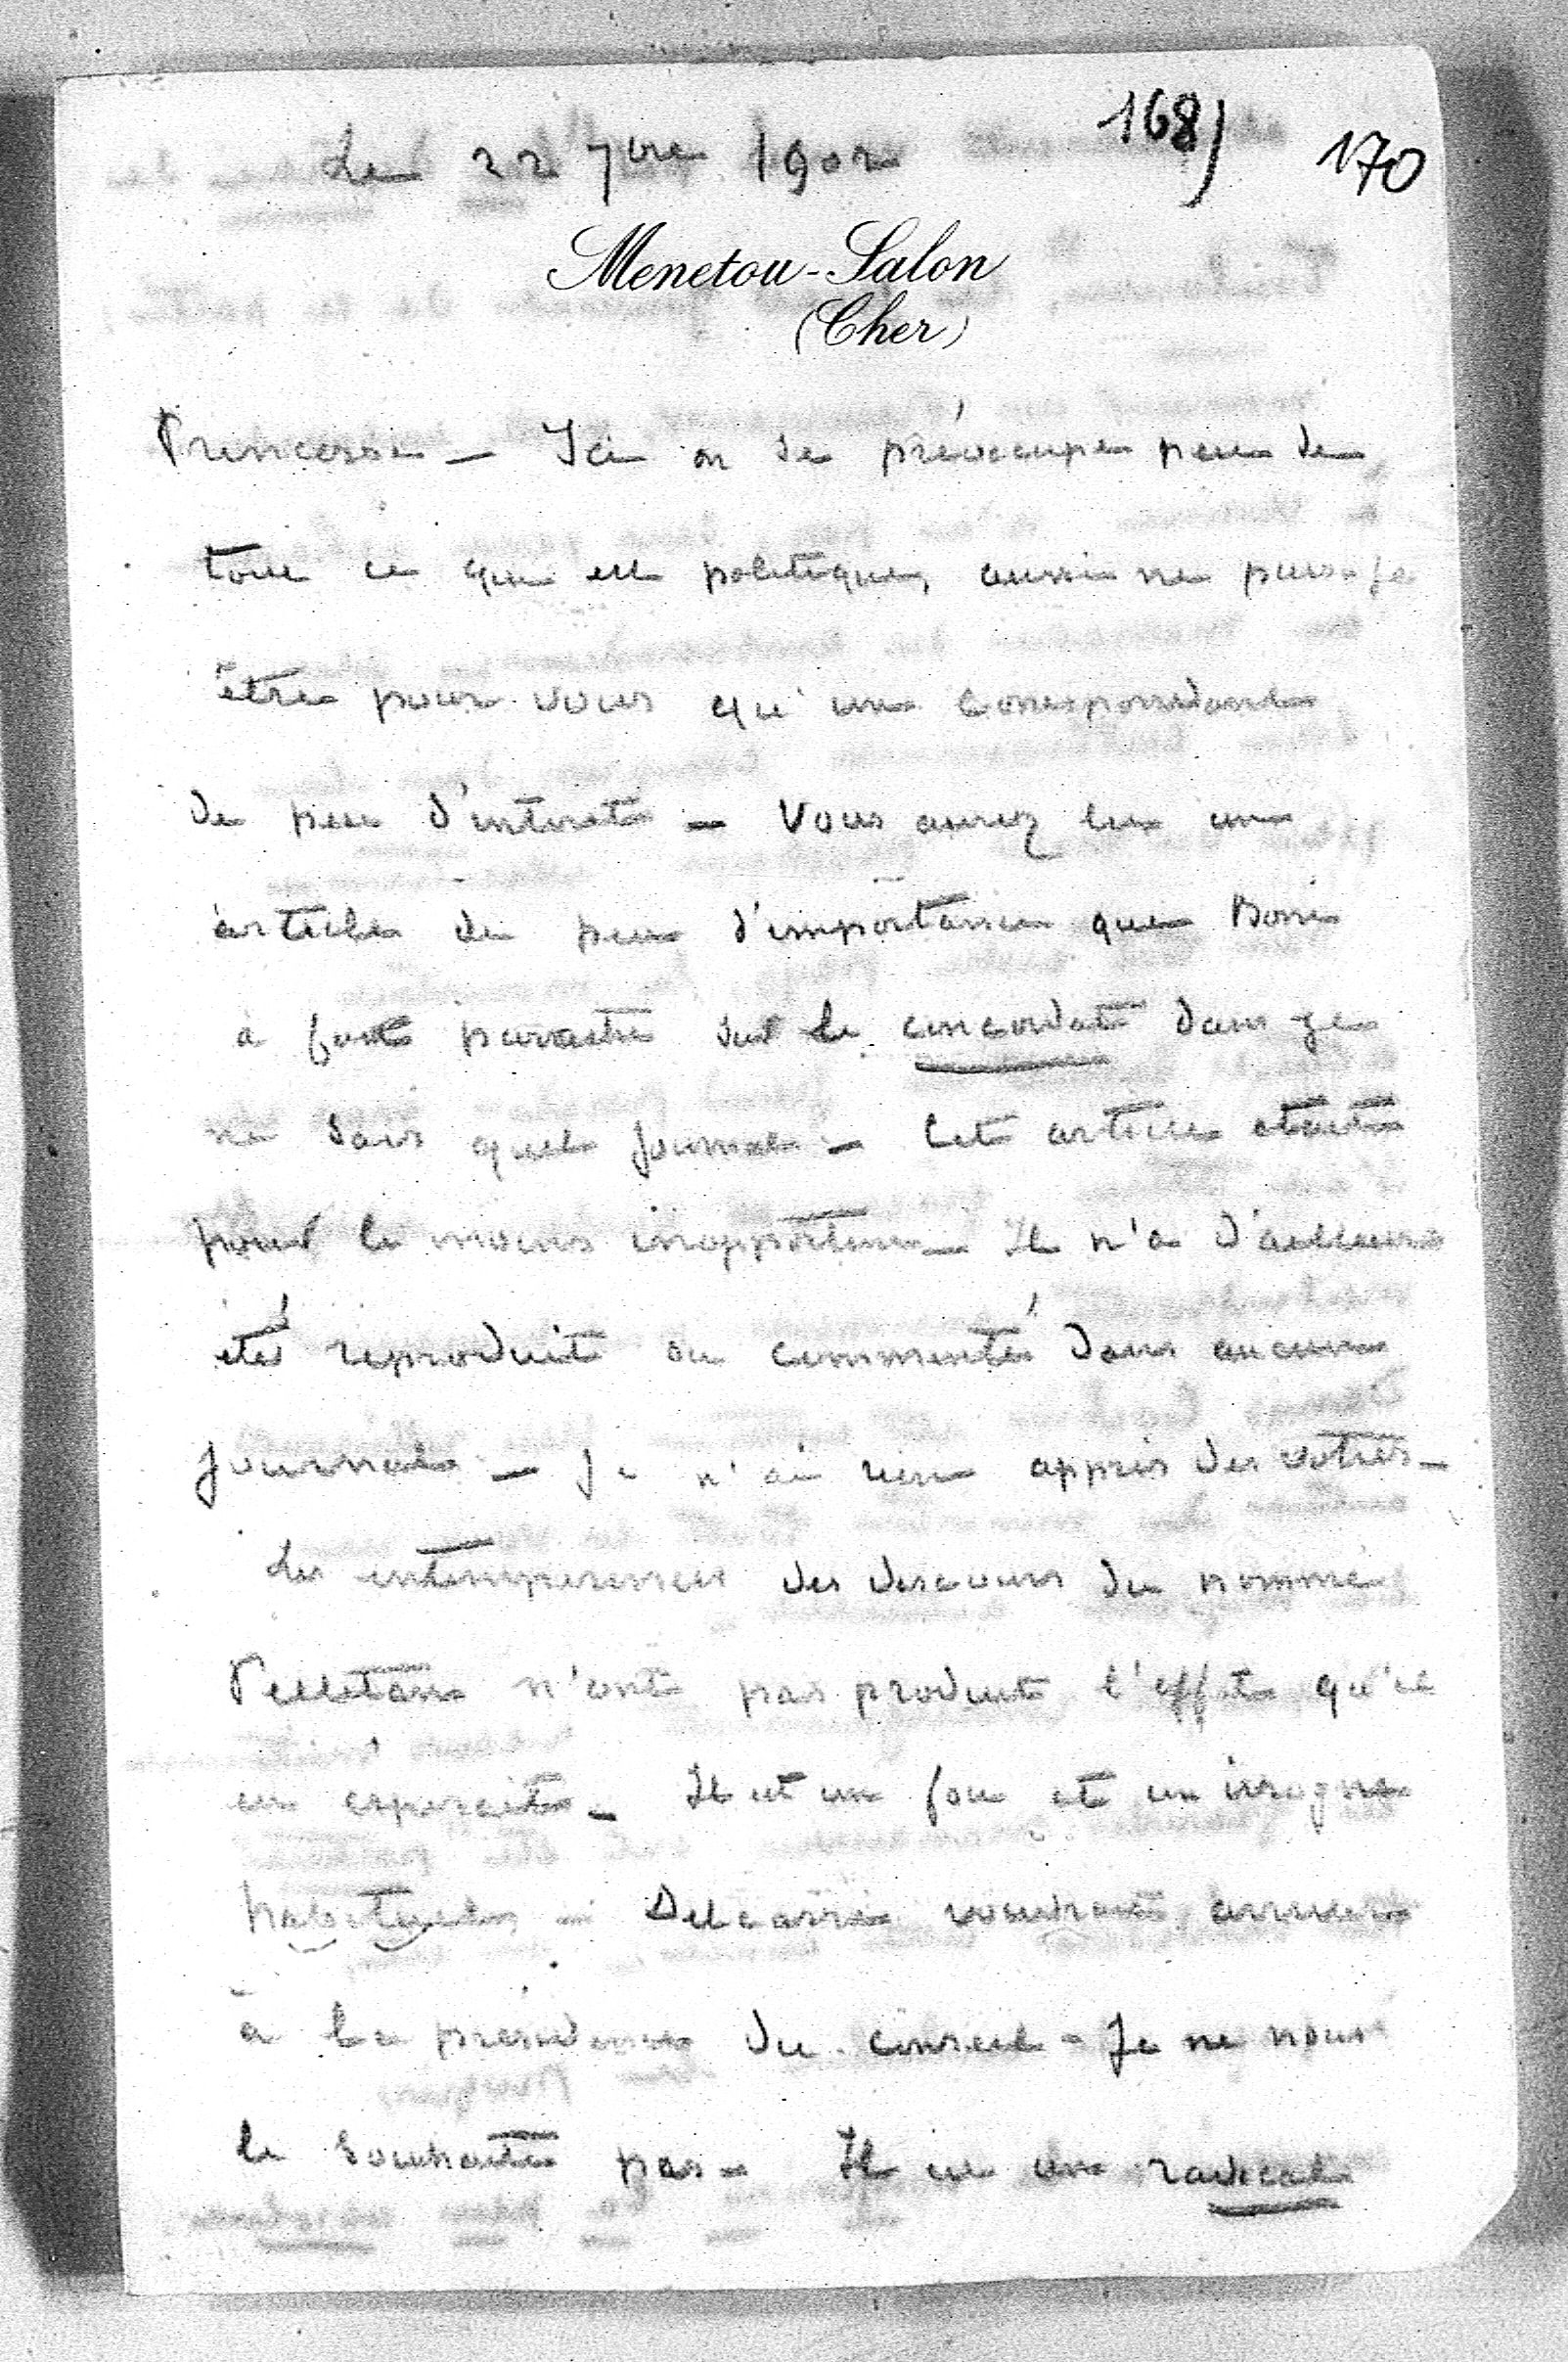 168)
170
Le 22 7bre 1902
Menetou-Salon
(Cher)
Princesse — Ici on se préoccupe peu de
tout ce qui est politique, aussi ne puis-je
être pour vous qu'un correspondant
de peu d'intérêt — Vous aurez lu un
article de peu d'importance que Boni
a fait paraitre sur le concordat dans je
ne sais quel journal — Cet article était
pour le moins inopportun — Il n'a d'ailleurs
été reproduit ou commenté dans aucun
journal — Je n'ai rien appris des votres —
Les intempérances des discours du nommé
Pelletan n'ont pas produit l'effet qu'il
en espérait — Il est un fou et un ivrogne
habituel — Delcassé voudrait arriver
à la présidence du conseil — Je ne nous
le souhaite pas — Il est un radical